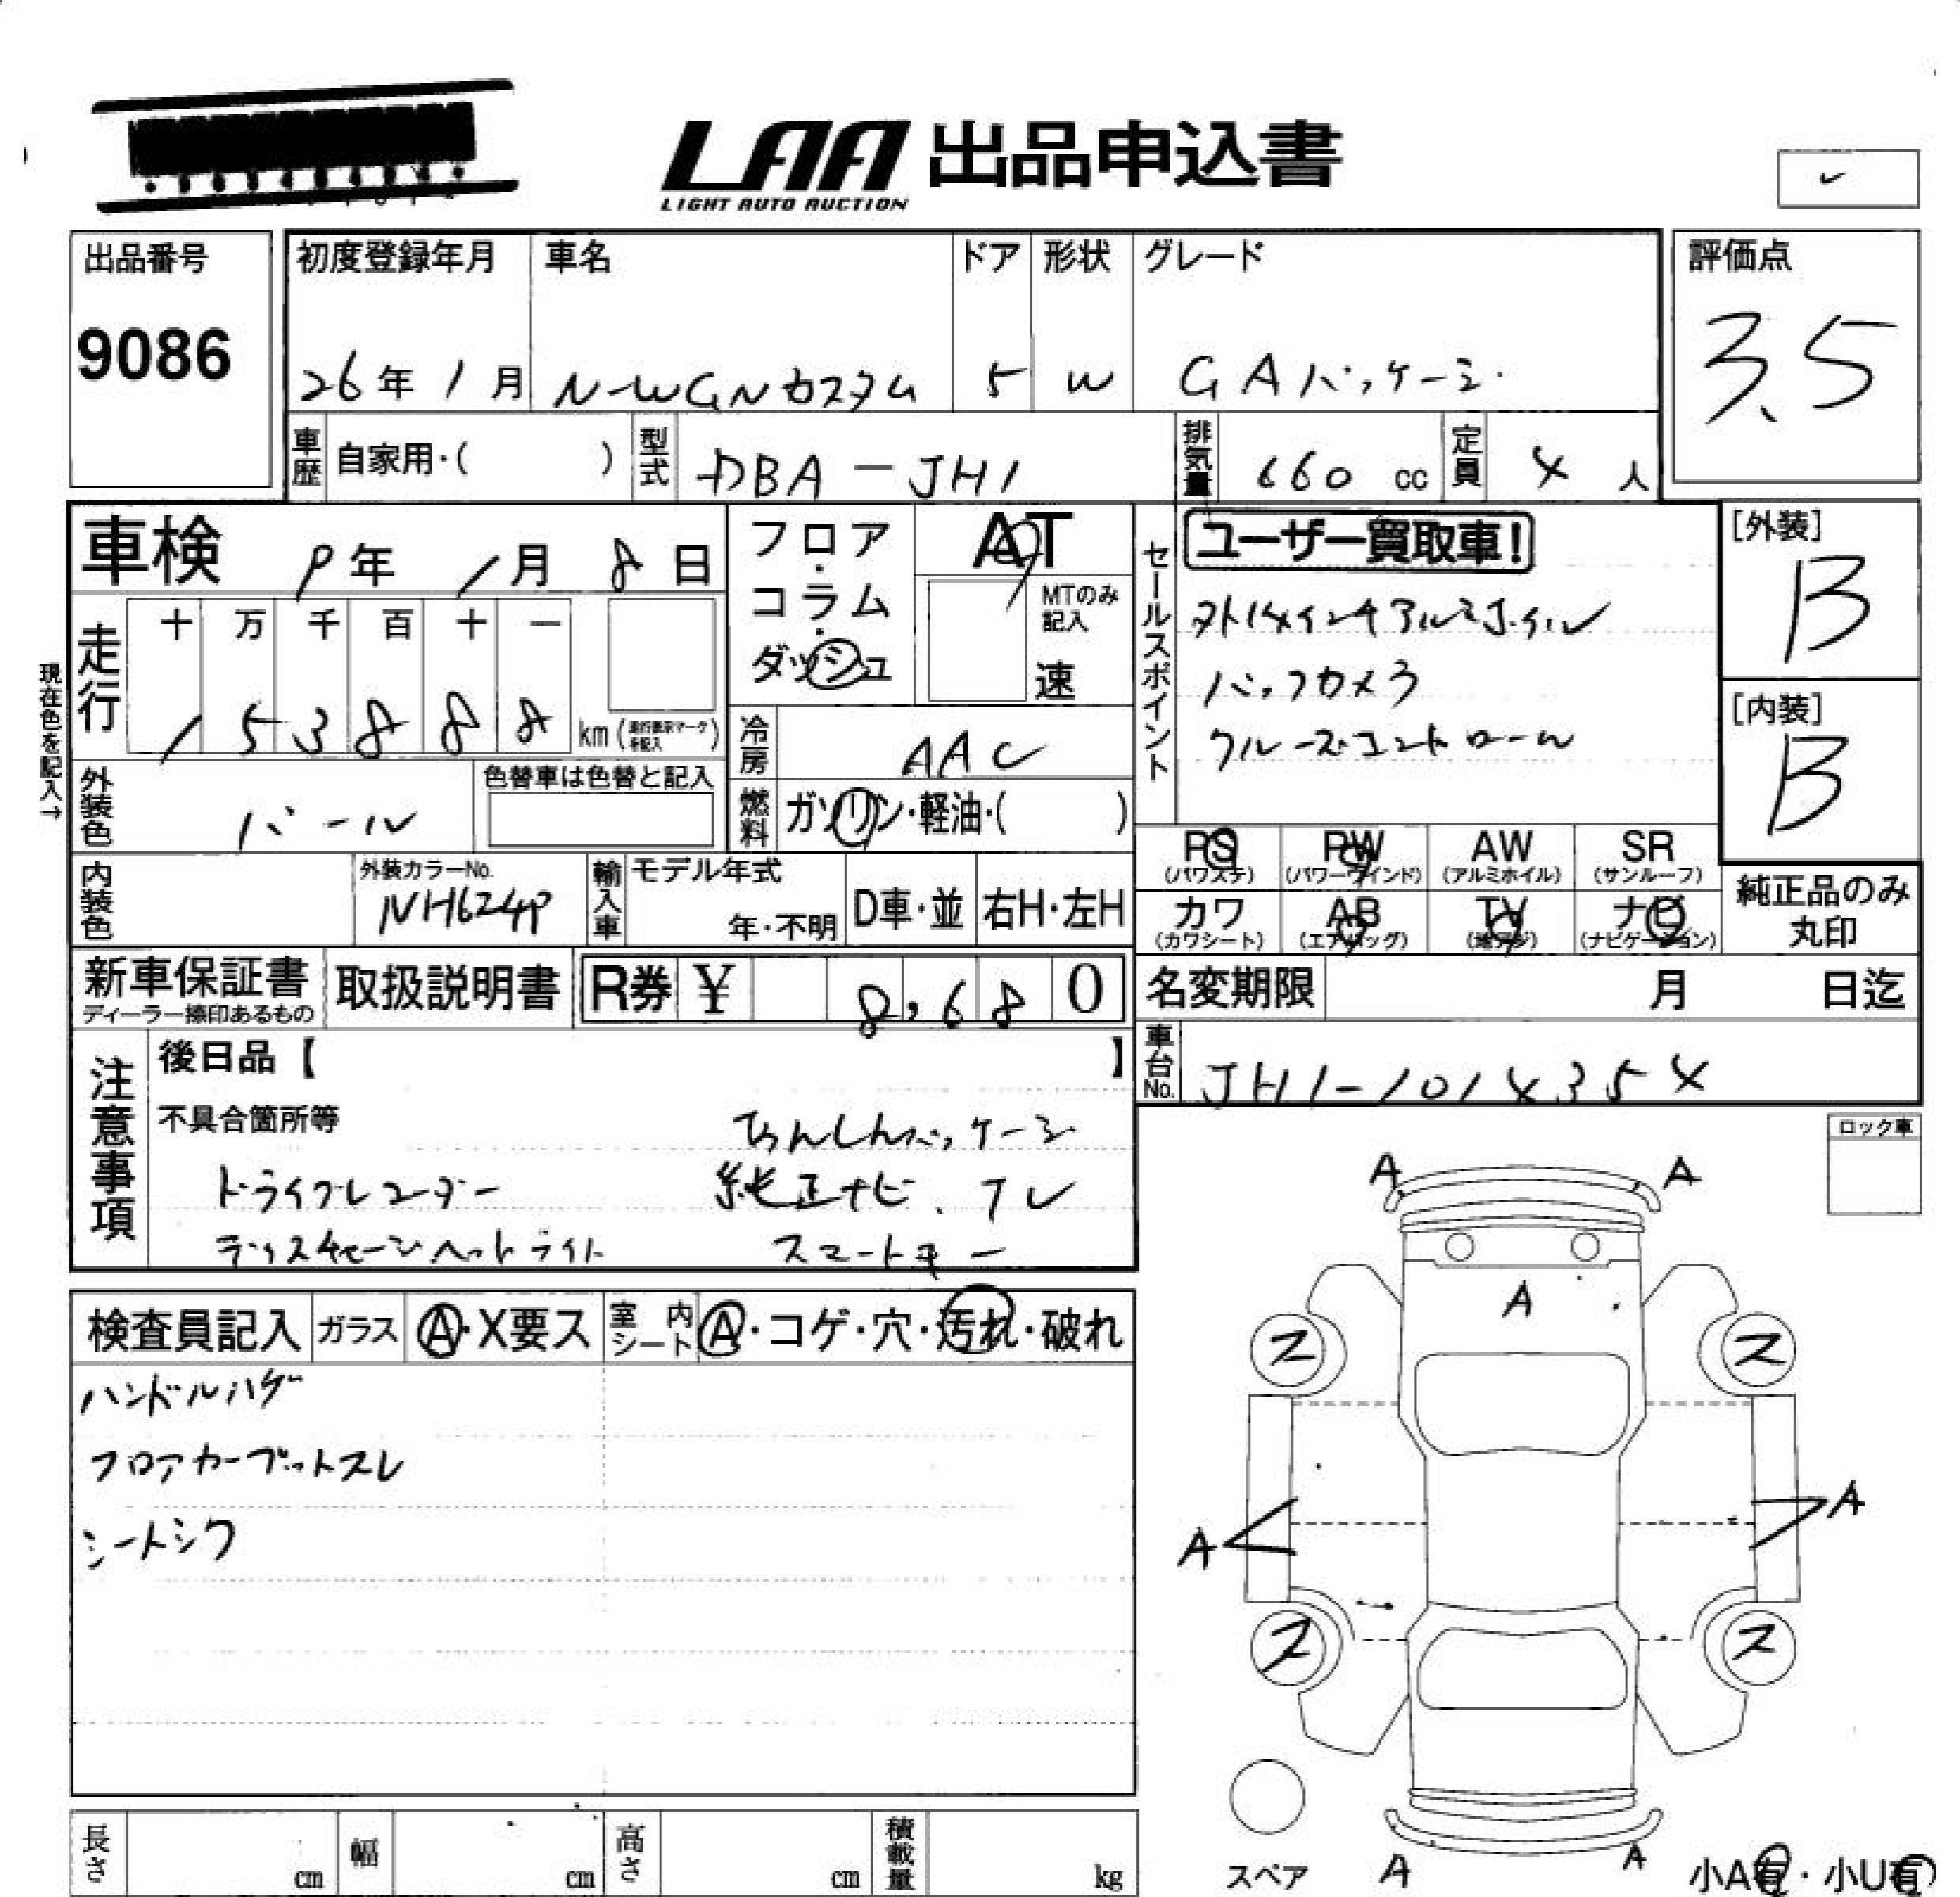 LAA 出品申込書
LIGHT AUTO AUCTION
出品番号
9086
初度登録年月
26年 1月
車名
N-WGNカスタム
ドア
5
形状
W
グレード
G Aパッケージ
評価点
3.5
車歴 自家用・( )
型式 DBA-JH1
排気量 660 cc
定員 4 人
車検 9年 1月 8日
フロア・コラム・ダッシュ
AT
MTのみ記入
速
走行 十 万 千 百 十 一
153888 km (走行表示マークを記入)
現在色を記入→
外装色 パール
色替車は色替と記入
冷房 AAC
燃料 ガソリン・軽油・( )
内装色
外装カラーNo.
NH624P
輸入車 モデル年式
年・不明
D車・並 右H・左H
セールスポイント
ユーザー買取車!
アルミホイル
バックカメラ
クルーズコントロール
[外装]
B
[内装]
B
PS (パワステ) PW (パワーウインド) AW (アルミホイル) SR (サンルーフ)
カワ (カワシート) AB (エアバッグ) TV (地デジ) ナビ (ナビゲーション)
純正品のみ丸印
新車保証書
ディーラー捺印あるもの
取扱説明書
R券 ¥ 8,680
名変期限 月 日迄
車台No. JH1-1014354
注意事項
後日品【 】
不具合箇所等
あんしんパッケージ
ドライブレコーダー 純正ナビ、テレ
ディスチャージヘットライト スマートキー
ロック車
検査員記入 ガラス A・X要ス 室内シート A・コゲ・穴・汚れ・破れ
ハンドルハゲ
フロアカーペットスレ
シートシワ
A A
A
ス ス
A A
ス ス
A A
スペア
小A有・小U有
長さ cm 幅 cm 高さ cm 積載量 kg